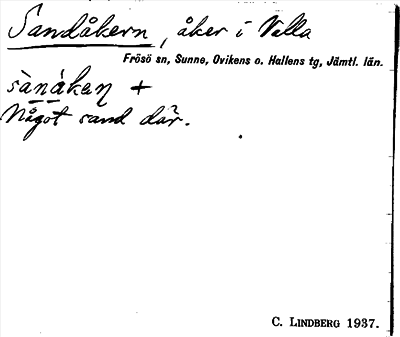 Sandåkern, åker i Valla
Frösö sn, Sunne, Ovikens o. Hallens tg, Jämtl. län.
sànáken +
Något sand där.
C. LINDBERG 1937.